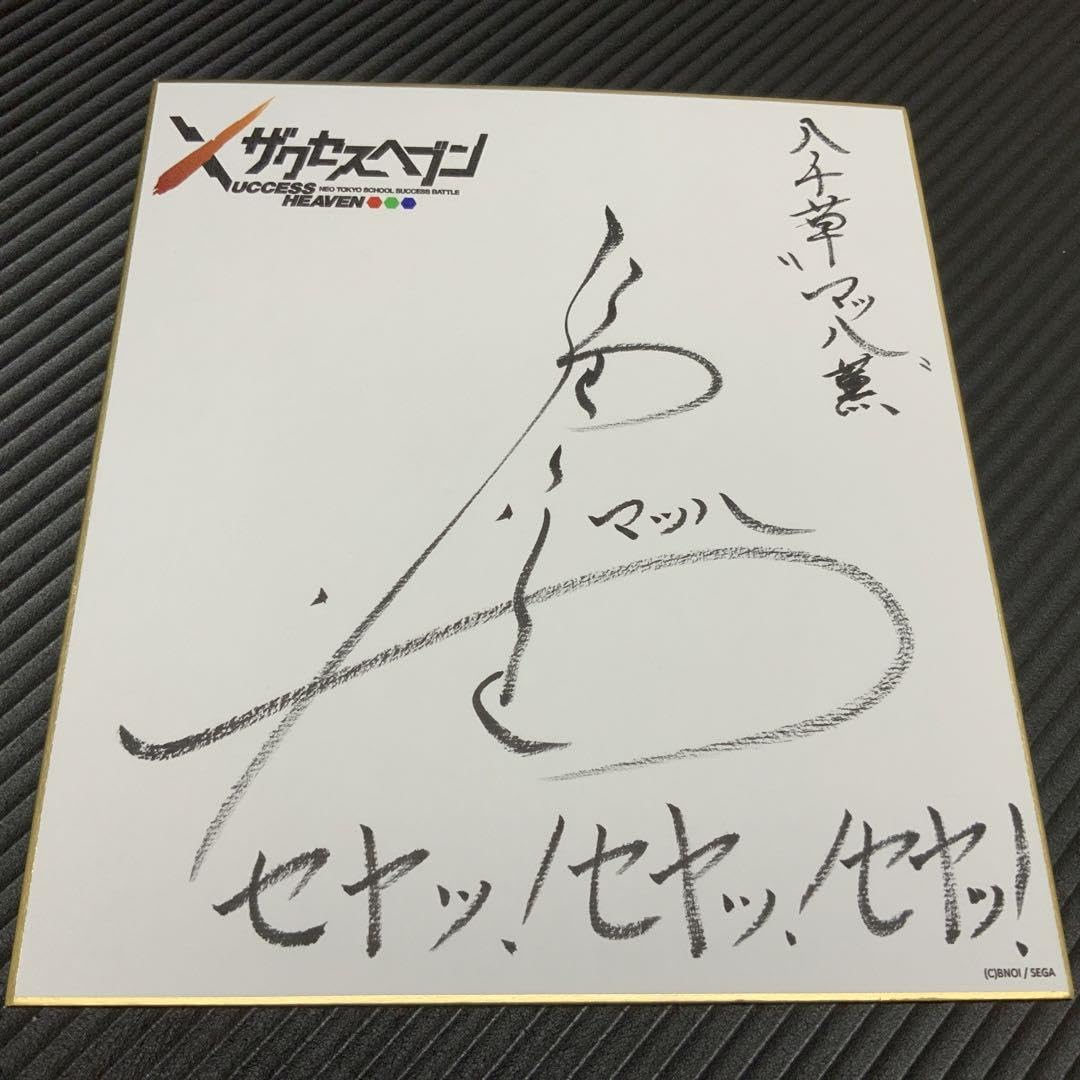 ザクセスヘブン
XUCCESS NEO TOKYO SCHOOL SUCCESS BATTLE
HEAVEN
八千草“マッハ”薫
マッハ
セヤッ!セヤッ!セヤッ!
(C)BNOI / SEGA